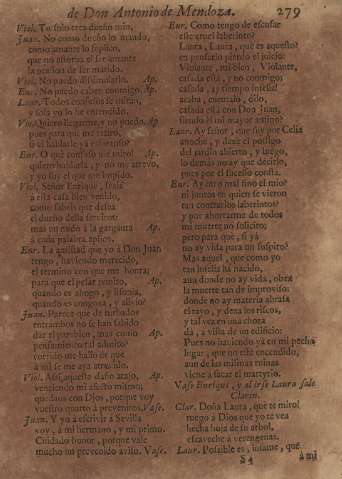 de Don Antonio de Mendoza. 279
Viol. Tu solo eres dueño mio,
Juan. No como dueño lo mando,
como amante lo suplico,
que no estorva el ser amante
la ocasion de ser mando.
Viol. No puedo dissimularla. Ap.
Enr. No puedo caber conmigo. Ap.
Laur. Todos confusos se miran,
y sola yo lo he entendido.
Viol. Quiero llegarme, y no puedo, Ap.
pues para que me retiro,
si el hablarle ya es forzoso?
Enr. O què confuso me miro! Ap.
quiero hablarla, y no me atrevo,
y yo soy el que me impido.
Viol. Señor Enrique, seais
à esta casa bien venido,
como sabeis que desea
el dueño della serviros:
mas un nudo à la garganta Ap.
à cada palabra aplico.
Enr. La amistad que yo à Don Juan
tengo, haviendo merecido,
el termino con que me honra;
para que el pesar remito, Ap.
quando es ahogo, y lisonja,
quando es congoxa, y alivio?
Juan. Parece que de turbados
entrambos no se han sabido
dar el parabien, mas como Ap.
pensamiento tal admito?
corrido me hallo de que
à mi se me aya atrevido.
Viol. Assi, aquesto daño atajo, Ap.
venciendo mi afecto mismo;
quedaos con Dios, porque voy
vuestro quarto à preveniros. Vase.
Juan. Y yo à escrivir à Sevilla
voy, à mi hermano, y mi primo.
Cuidado honor, porque vale
mucho un prevenido aviso. Vase.
Enr. Como tengo de escusar
este cruel laberinto?
Laura, Laura, què es aquesto?
en pensarlo pierdo el juicio:
Violante, mi bien, Violante,
casada está, y no conmigo;
casada, ay tiempo infiel!
acaba, cuentalo, dilo,
casada está con Don Juan,
siendo èl mi mayor amigo?
Laur. Ay señor, que fuy por Celia
anoche, y dexè el postigo
del jardin abierto, y luego,
lo demàs no ay que decirlo,
pues por el sucesso consta.
Enr. Ay otro mal sino el mio?
ni juntos en quien se vieron
tan contrarios laberintos?
y por ahorrarme de todos
mi muerte no solicito;
pero para què, si yà
no ay vida para un suspiro?
Mas aquel, que como yo
tan infeliz ha nacido,
aun donde no ay vida, obra
la muerte tan de improviso:
donde no ay materia abrasa
el rayo, y dexa los riscos,
y tal vez en una choza
dà, à vista de un edificio:
Pues no haviendo yà en mi pecho
lugar, que no estè encendido,
aun de las mismas ruinas
viene à sacar el martyrio.
Vase Enrique, y al irse Laura sale
Clarin.
Clar. Doña Laura, què te miro!
ruego à Dios que yo te vea
hecha hoja de su arbol,
escaveche à verengenas.
Laur. Possible es, infame, que
S 4 à mi